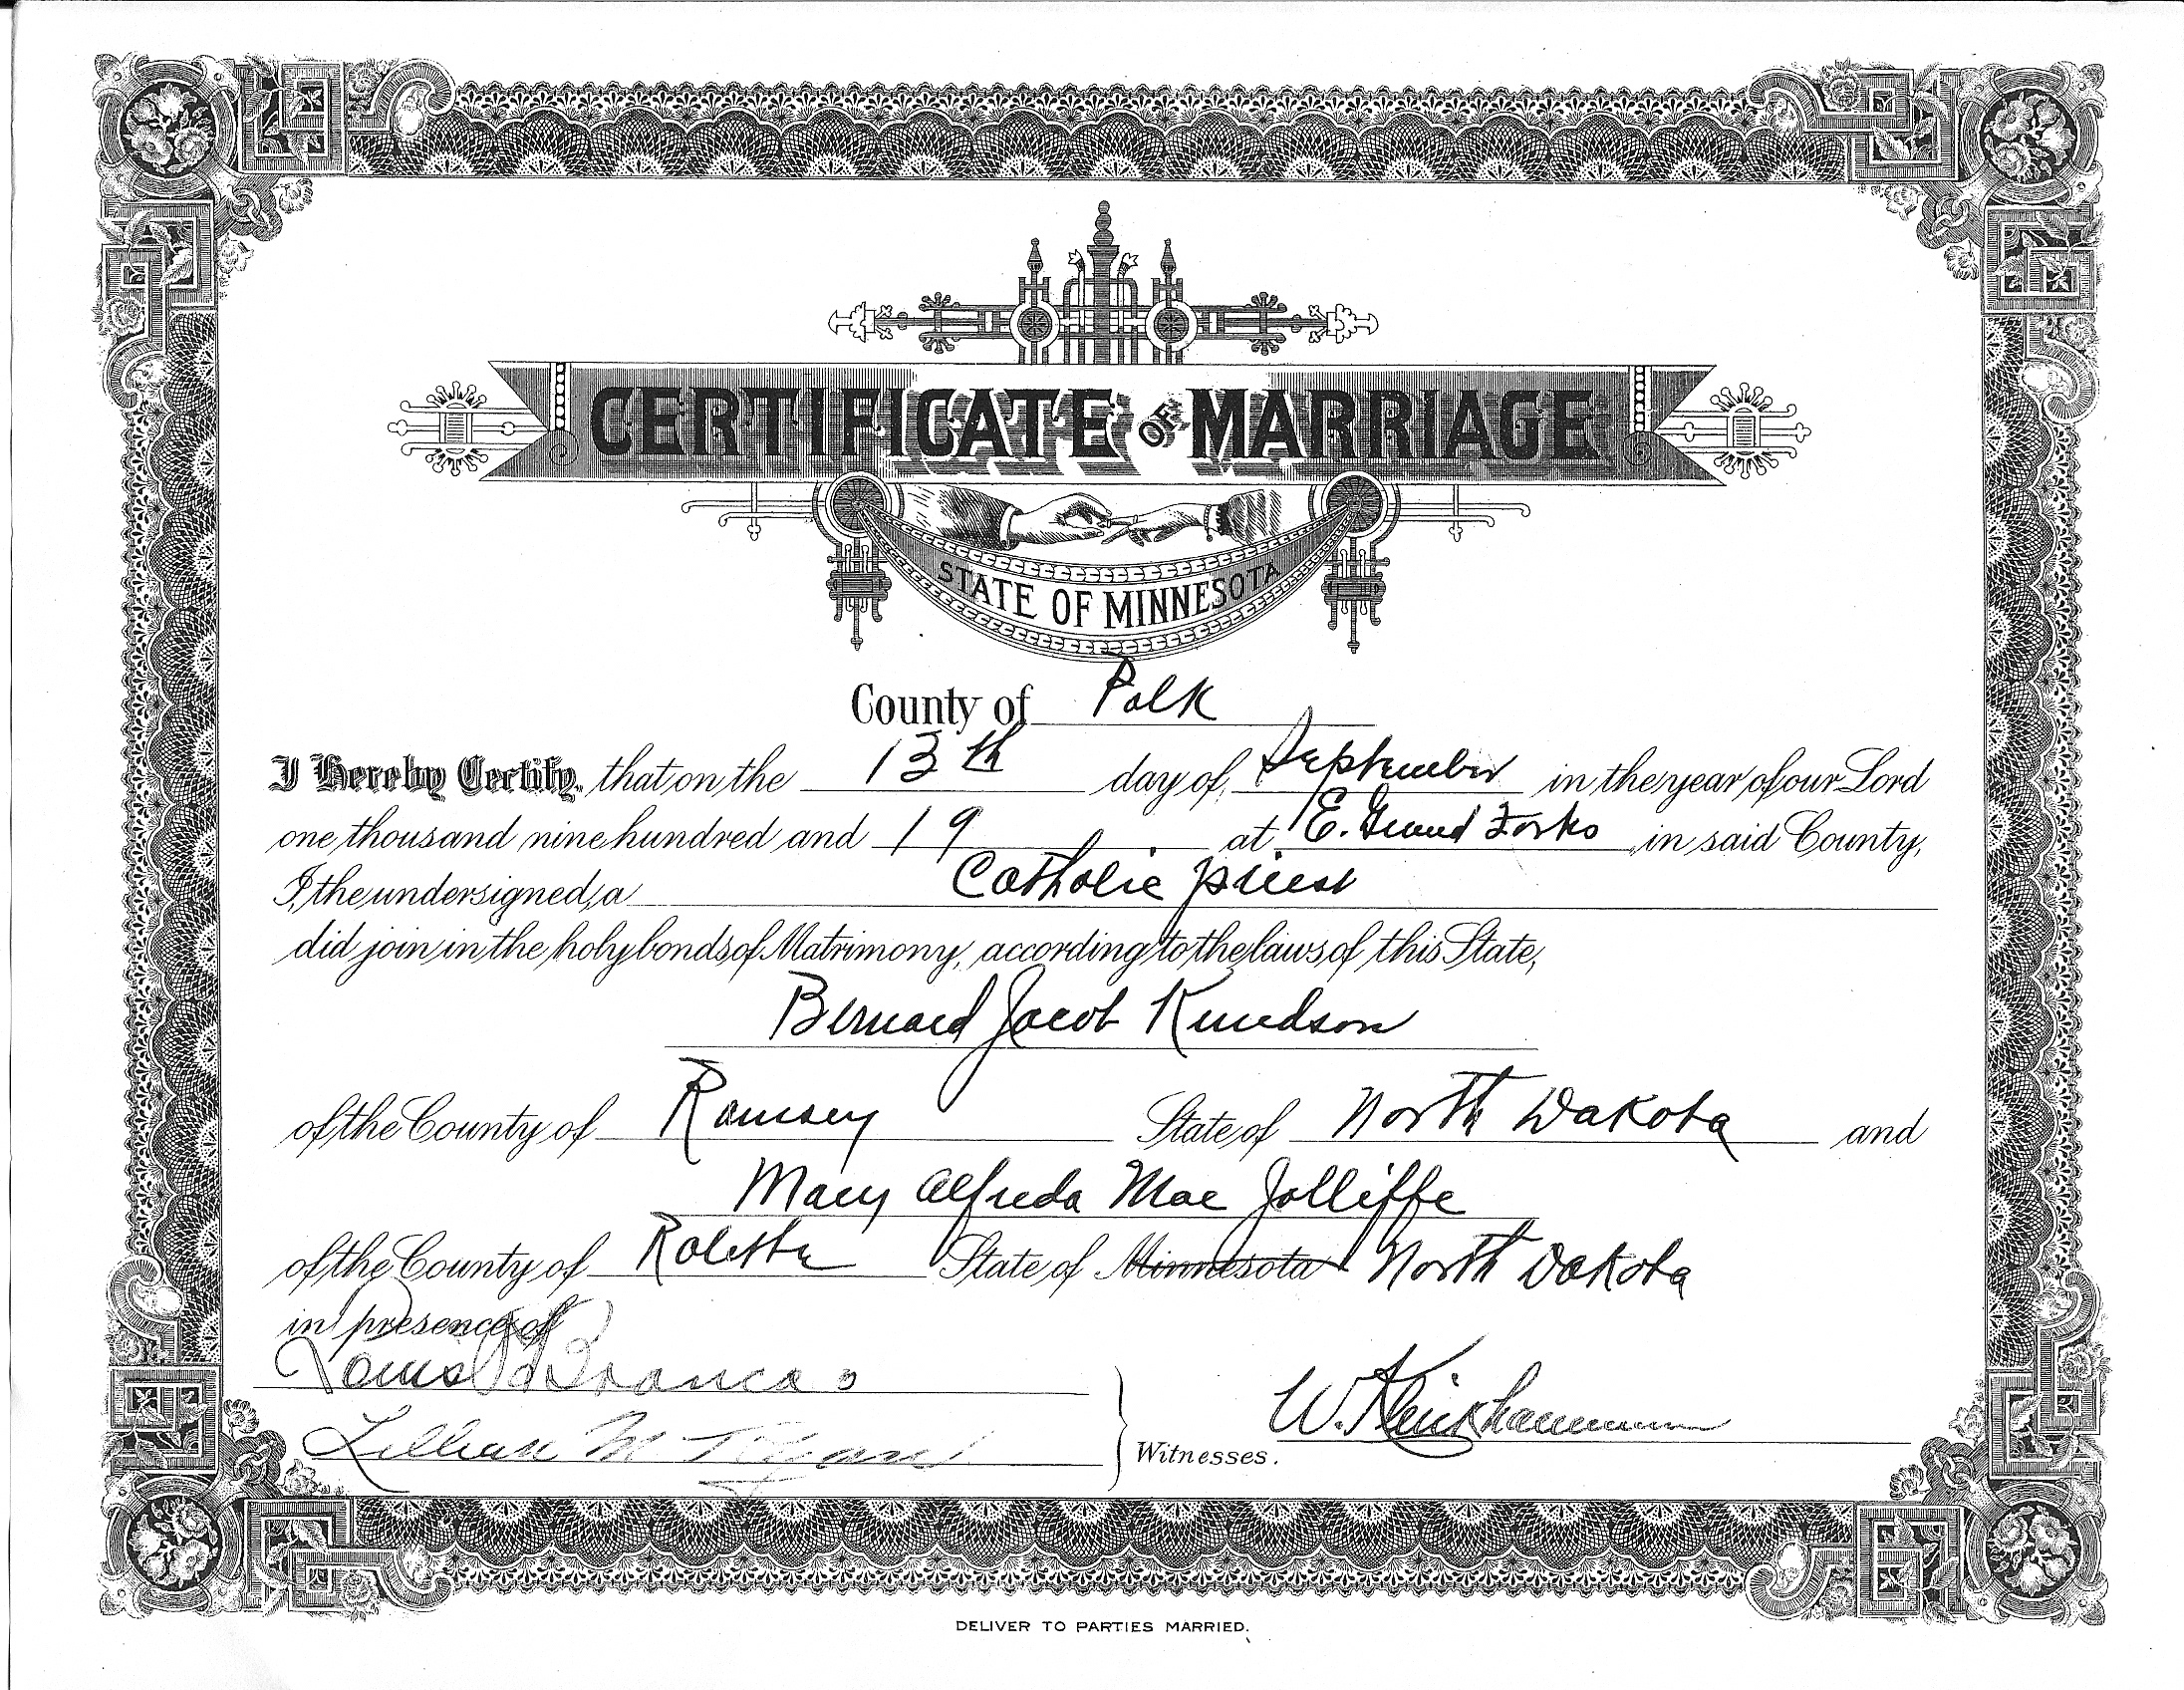 CERTIFICATE OF MARRIAGE
STATE OF MINNESOTA
County of Polk
I Hereby Certify, that on the 13th day of September in the year of our Lord
one thousand nine hundred and 19 at E. Grand Forks in said County,
I, the undersigned, a Catholic priest
did join in the holy bonds of Matrimony, according to the laws of this State,
Bernard Jacob Knudson
of the County of Ramsey State of North Dakota and
Mary Alfreda Mae Jolliffe
of the County of Rolette State of Minnesota North Dakota
in presence of
Louis
Lillian M
Witnesses.
W.
DELIVER TO PARTIES MARRIED.